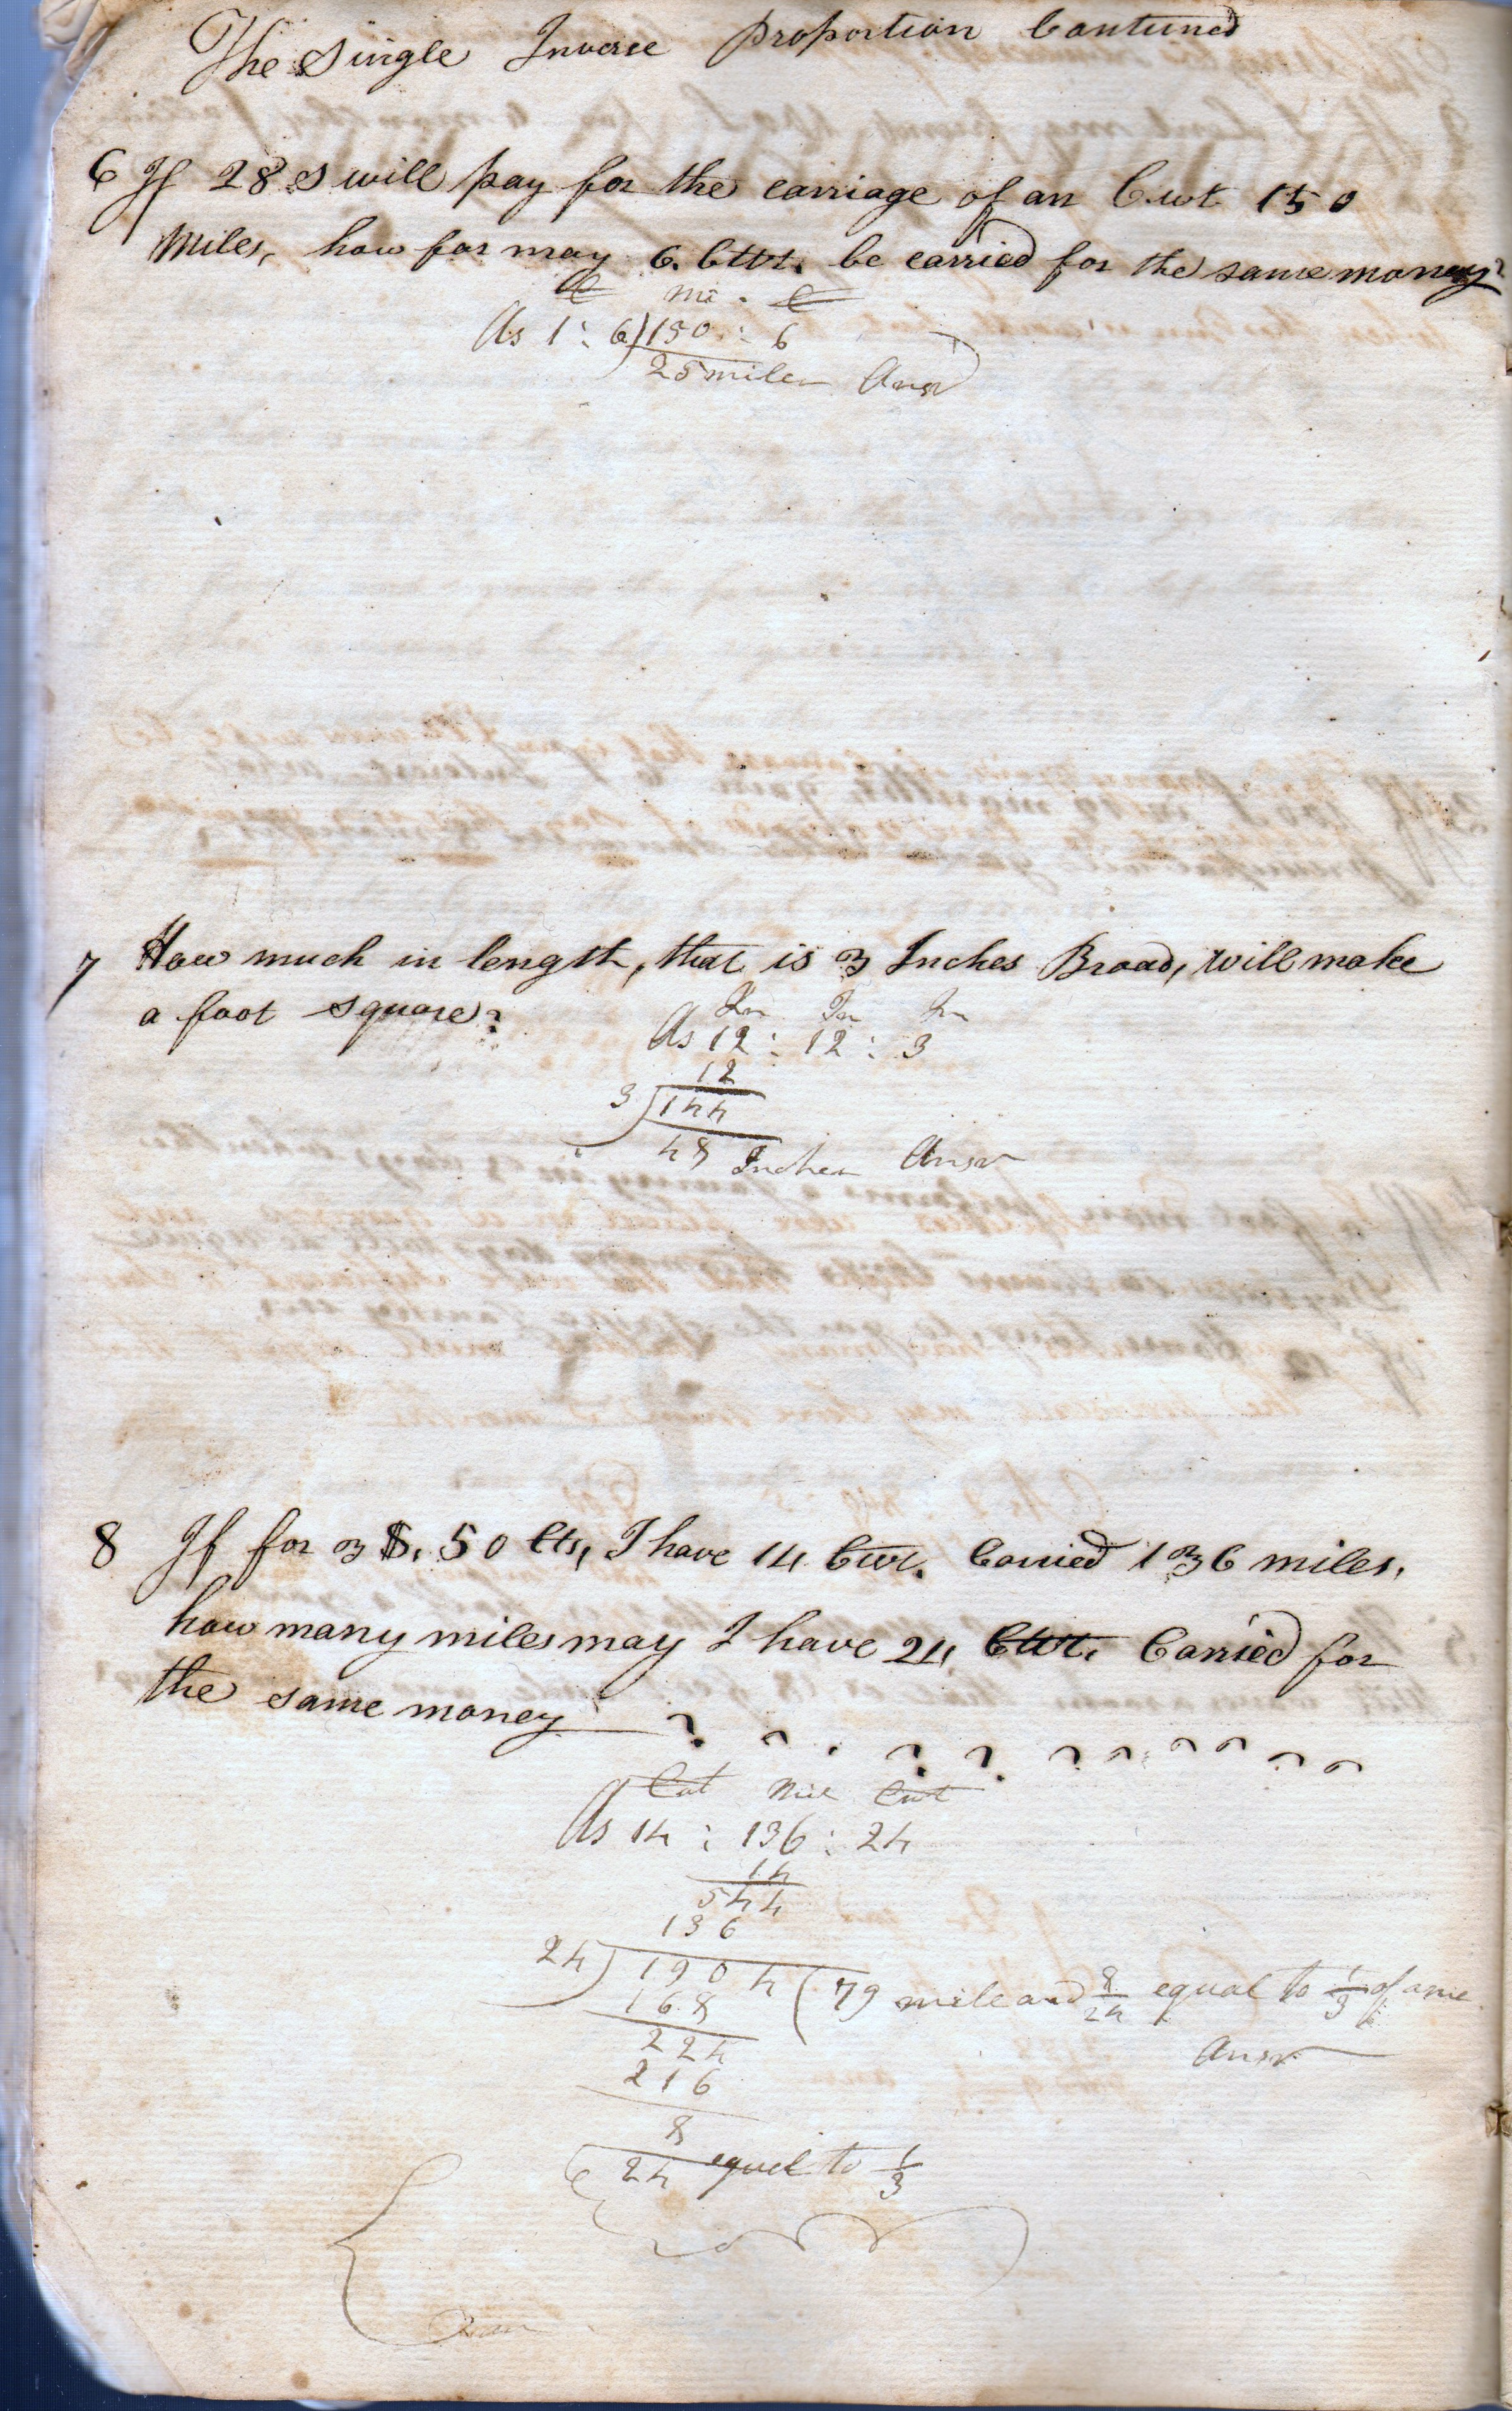 The Single Inverse Proportion Contuned
6 If 28 s will pay for the carriage of an C.wt 150
Miles, how far may 6. Cwt. be carried for the same money?
C mi . C
As 1 : 6)150 : 6
25 miles Ansr
7 How much in length, that is 3 Inches Broad, will make
a foot square?
In In In
As 12 : 12 : 3
12
3 144
48 Inches Ansr
8 If for 3 $. 50 Cts, I have 14 Cwt. Carried 136 miles,
how many miles may I have 24 Cwt. Carried for
the same money ?
Cwt Mil Cwt
As 14 : 136 : 24
14
544
136
24) 1904 (79 mile and 8/24 equal to 1/3 of a mie
168
Ansr
224
216
8
24 equel to 1/3